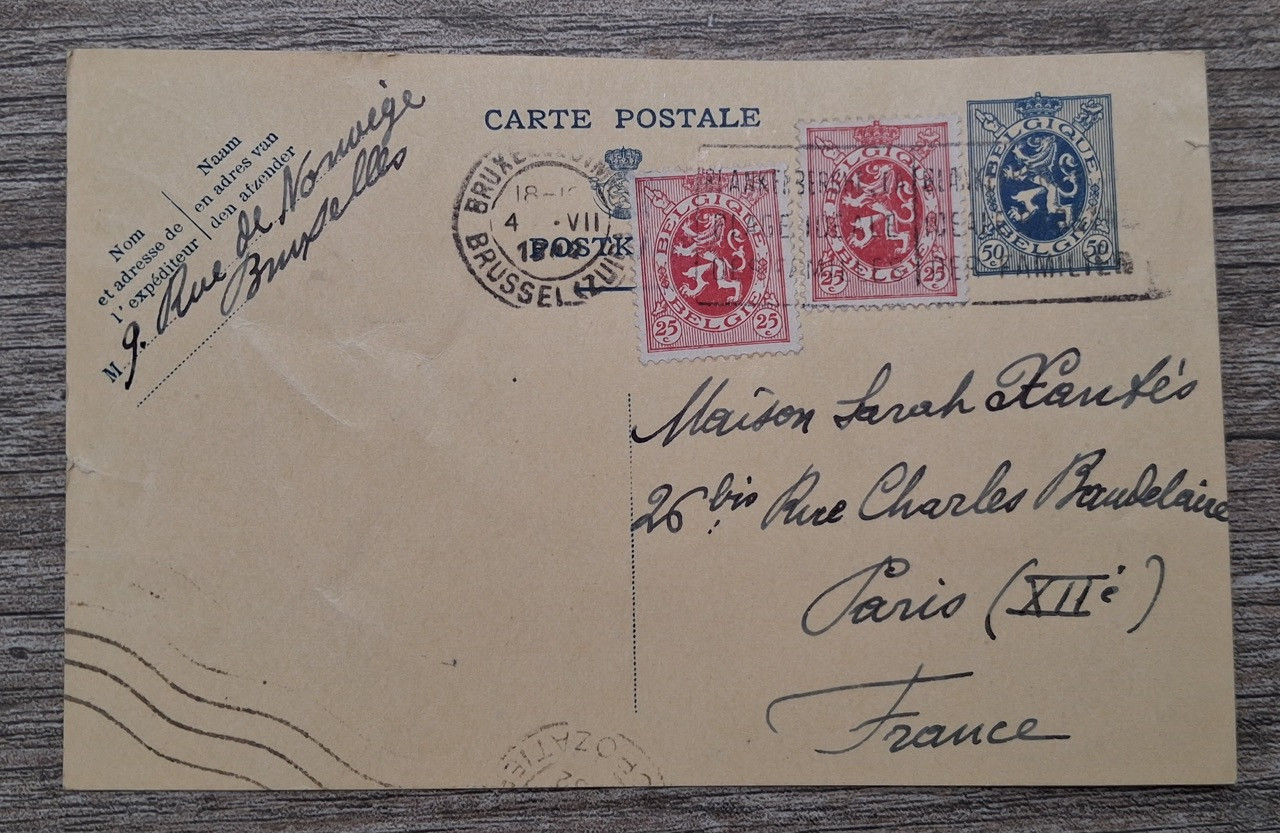 CARTE POSTALE
Nom
et adresse de
l'expéditeur
Naam
en adres van
den afzender
M 9. Rue de Norvège
Bruxelles
BRUXELLES
4 VII
BRUSSEL (ZUID)
POSTK
BELGIQUE
BELGIE
25c 25c
BELGIQUE
BELGIE
25c 25c
BELGIQUE
BELGIE
50 50
Maison Sarah Xantès
26 bis Rue Charles Baudelaire
Paris (XIIè)
France